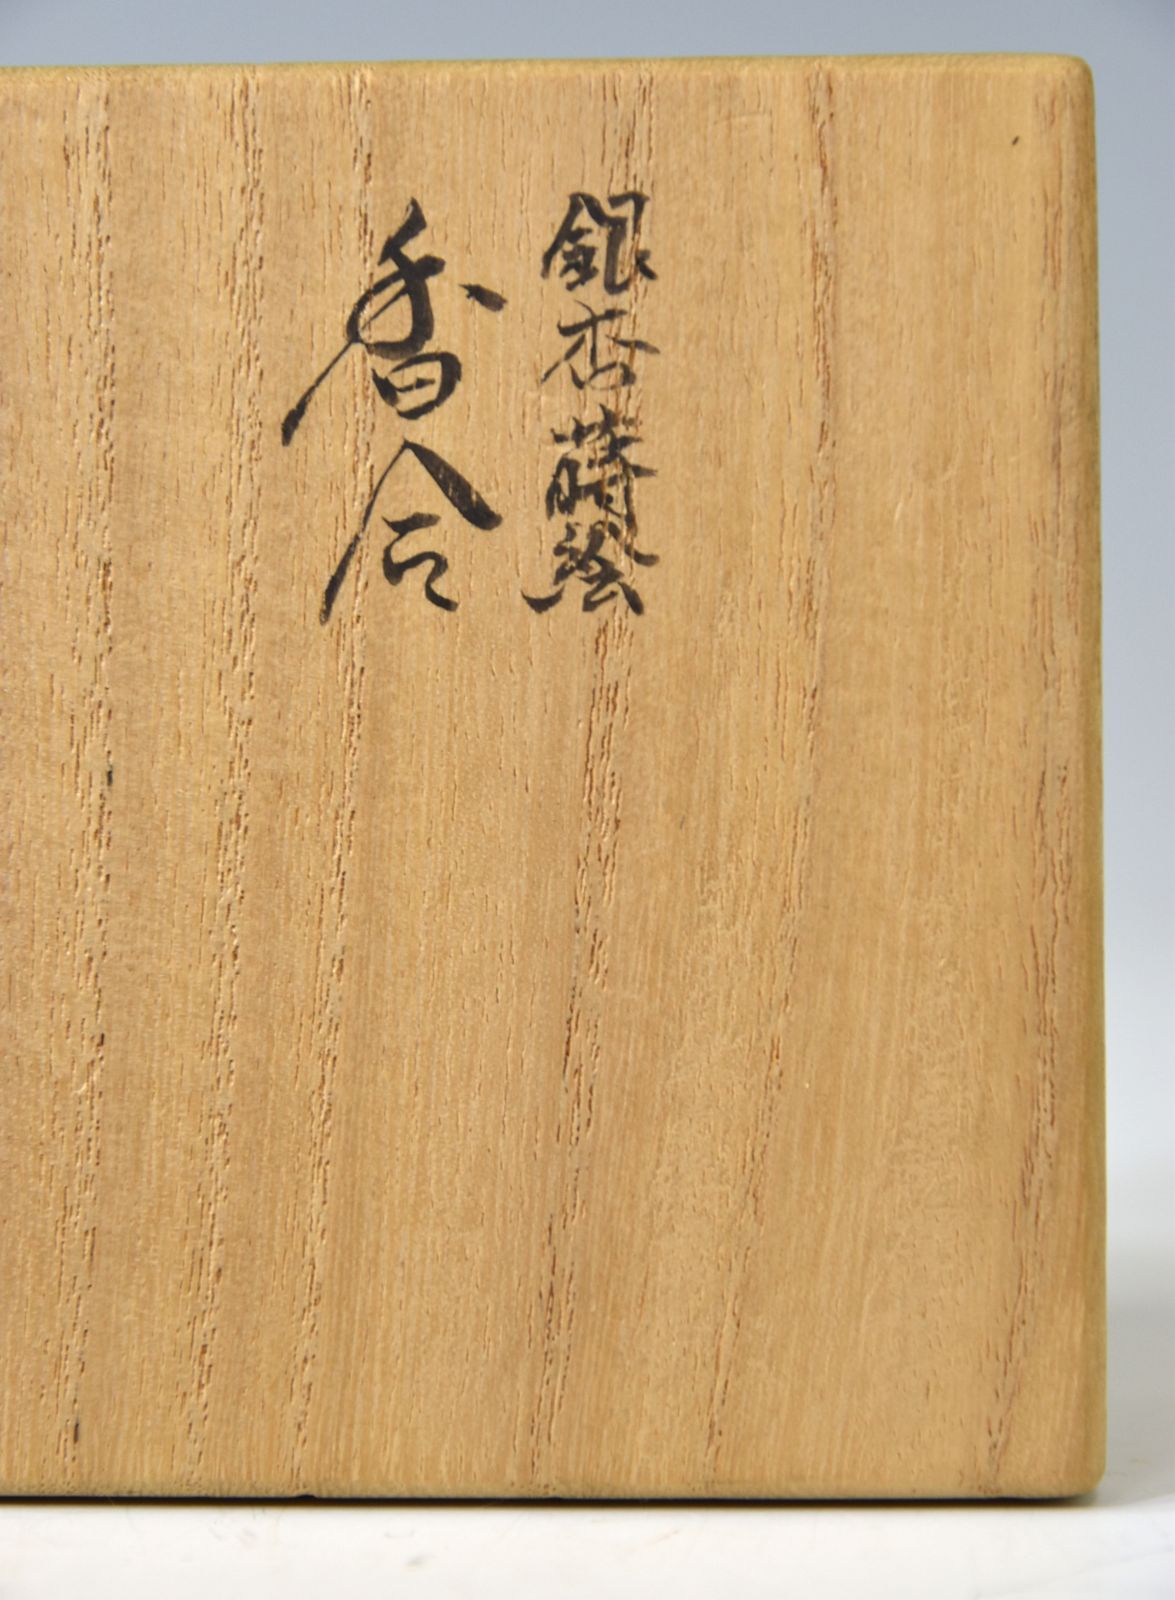 銀杏蒔絵
香合